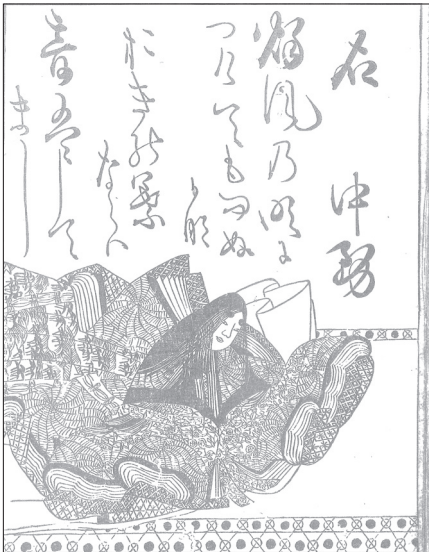 右 中務
秋風乃吹に
つけても問ぬ
かな
おきの葉
ならは
音はして
まし